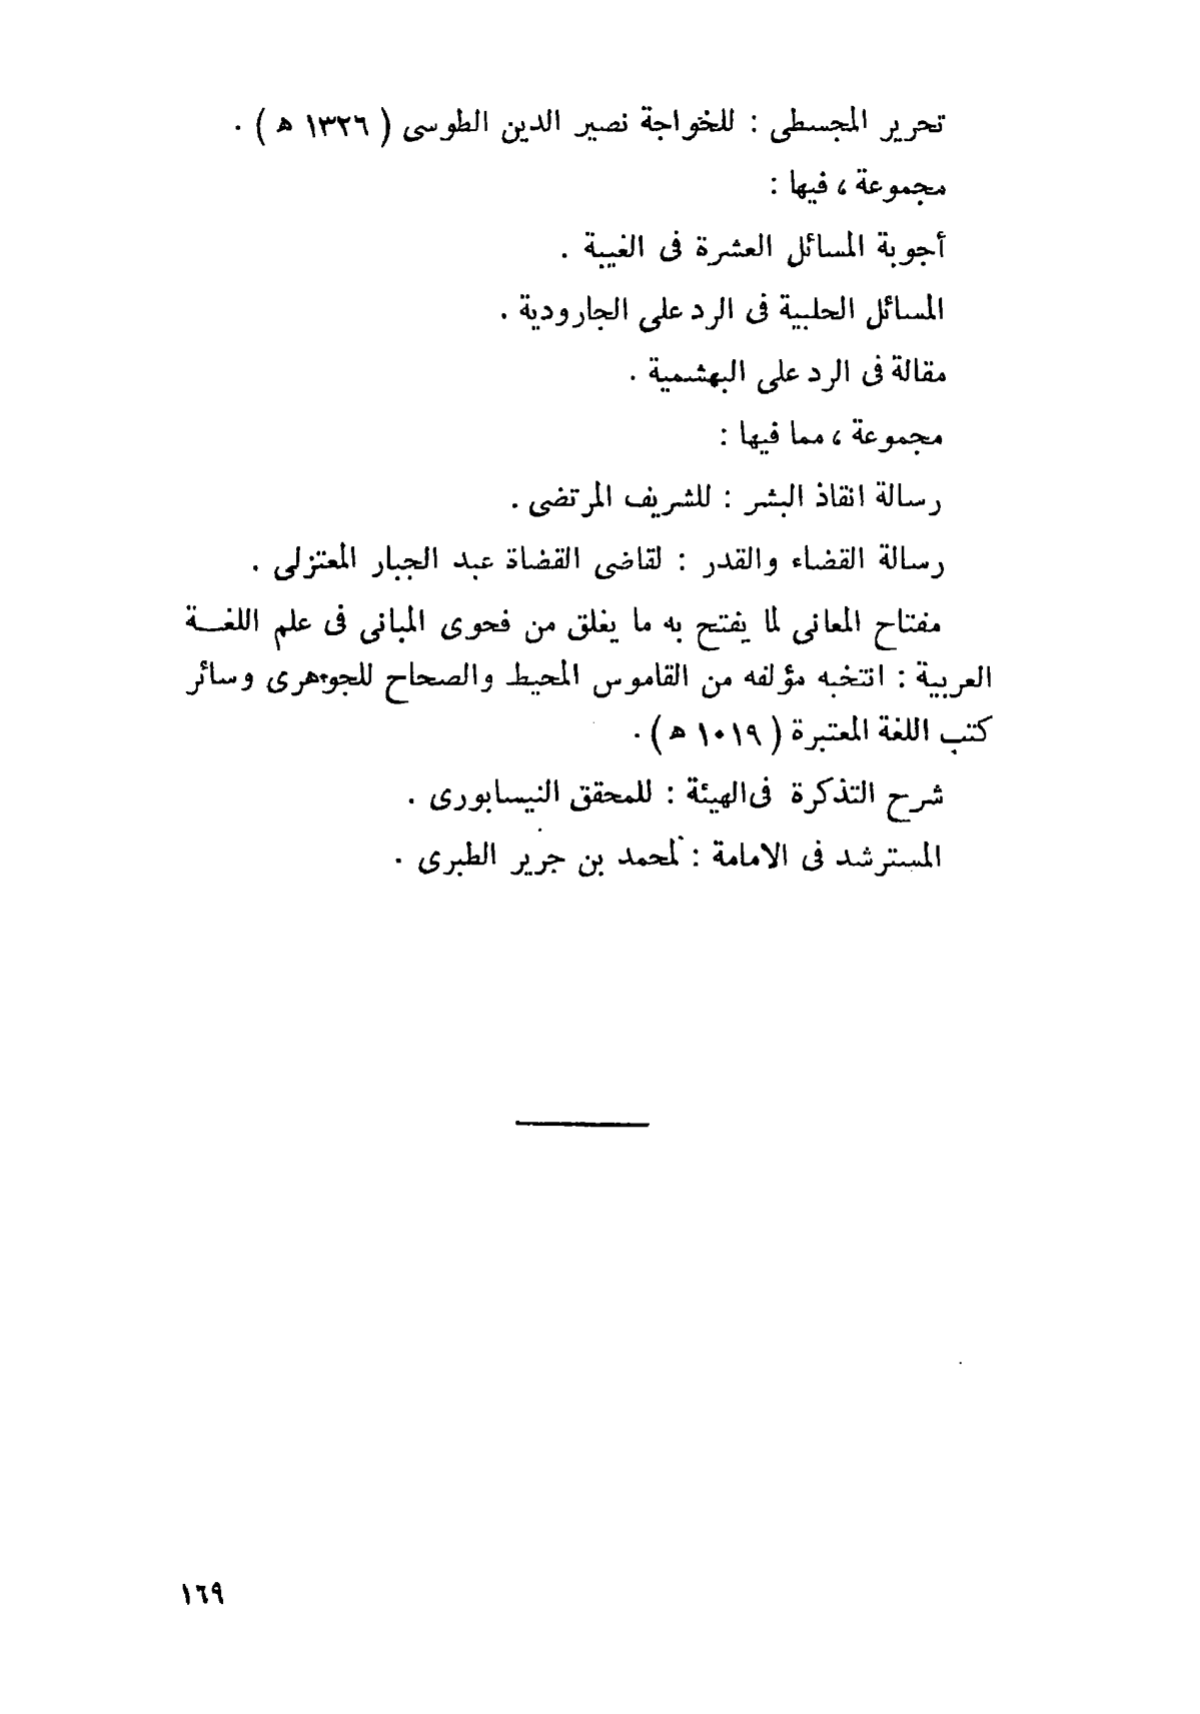 تحرير المجسطى : للخواجة نصير الدين الطوسى ( ١٣٢٦ ه ) .
مجموعة ، فيها :
أجوبة المسائل العشرة فى الغيبة .
المسائل الحلبية فى الرد على الجارودية .
مقالة فى الرد على البهشمية .
مجموعة ، مما فيها :
رسالة انقاذ البشر : للشريف المرتضى .
رسالة القضاء والقدر : لقاضى القضاة عبد الجبار المعتزلى .
مفتاح المعانى لما يفتح به ما يغلق من فحوى المبانى فى علم اللغــة
العربية : انتخبه مؤلفه من القاموس المحيط والصحاح للجوهرى وسائر
كتب اللغة المعتبرة ( ١٠١٩ ه ) .
شرح التذكرة فى الهيئة : للمحقق النيسابورى .
المسترشد فى الامامة : لمحمد بن جرير الطبرى .
١٦٩